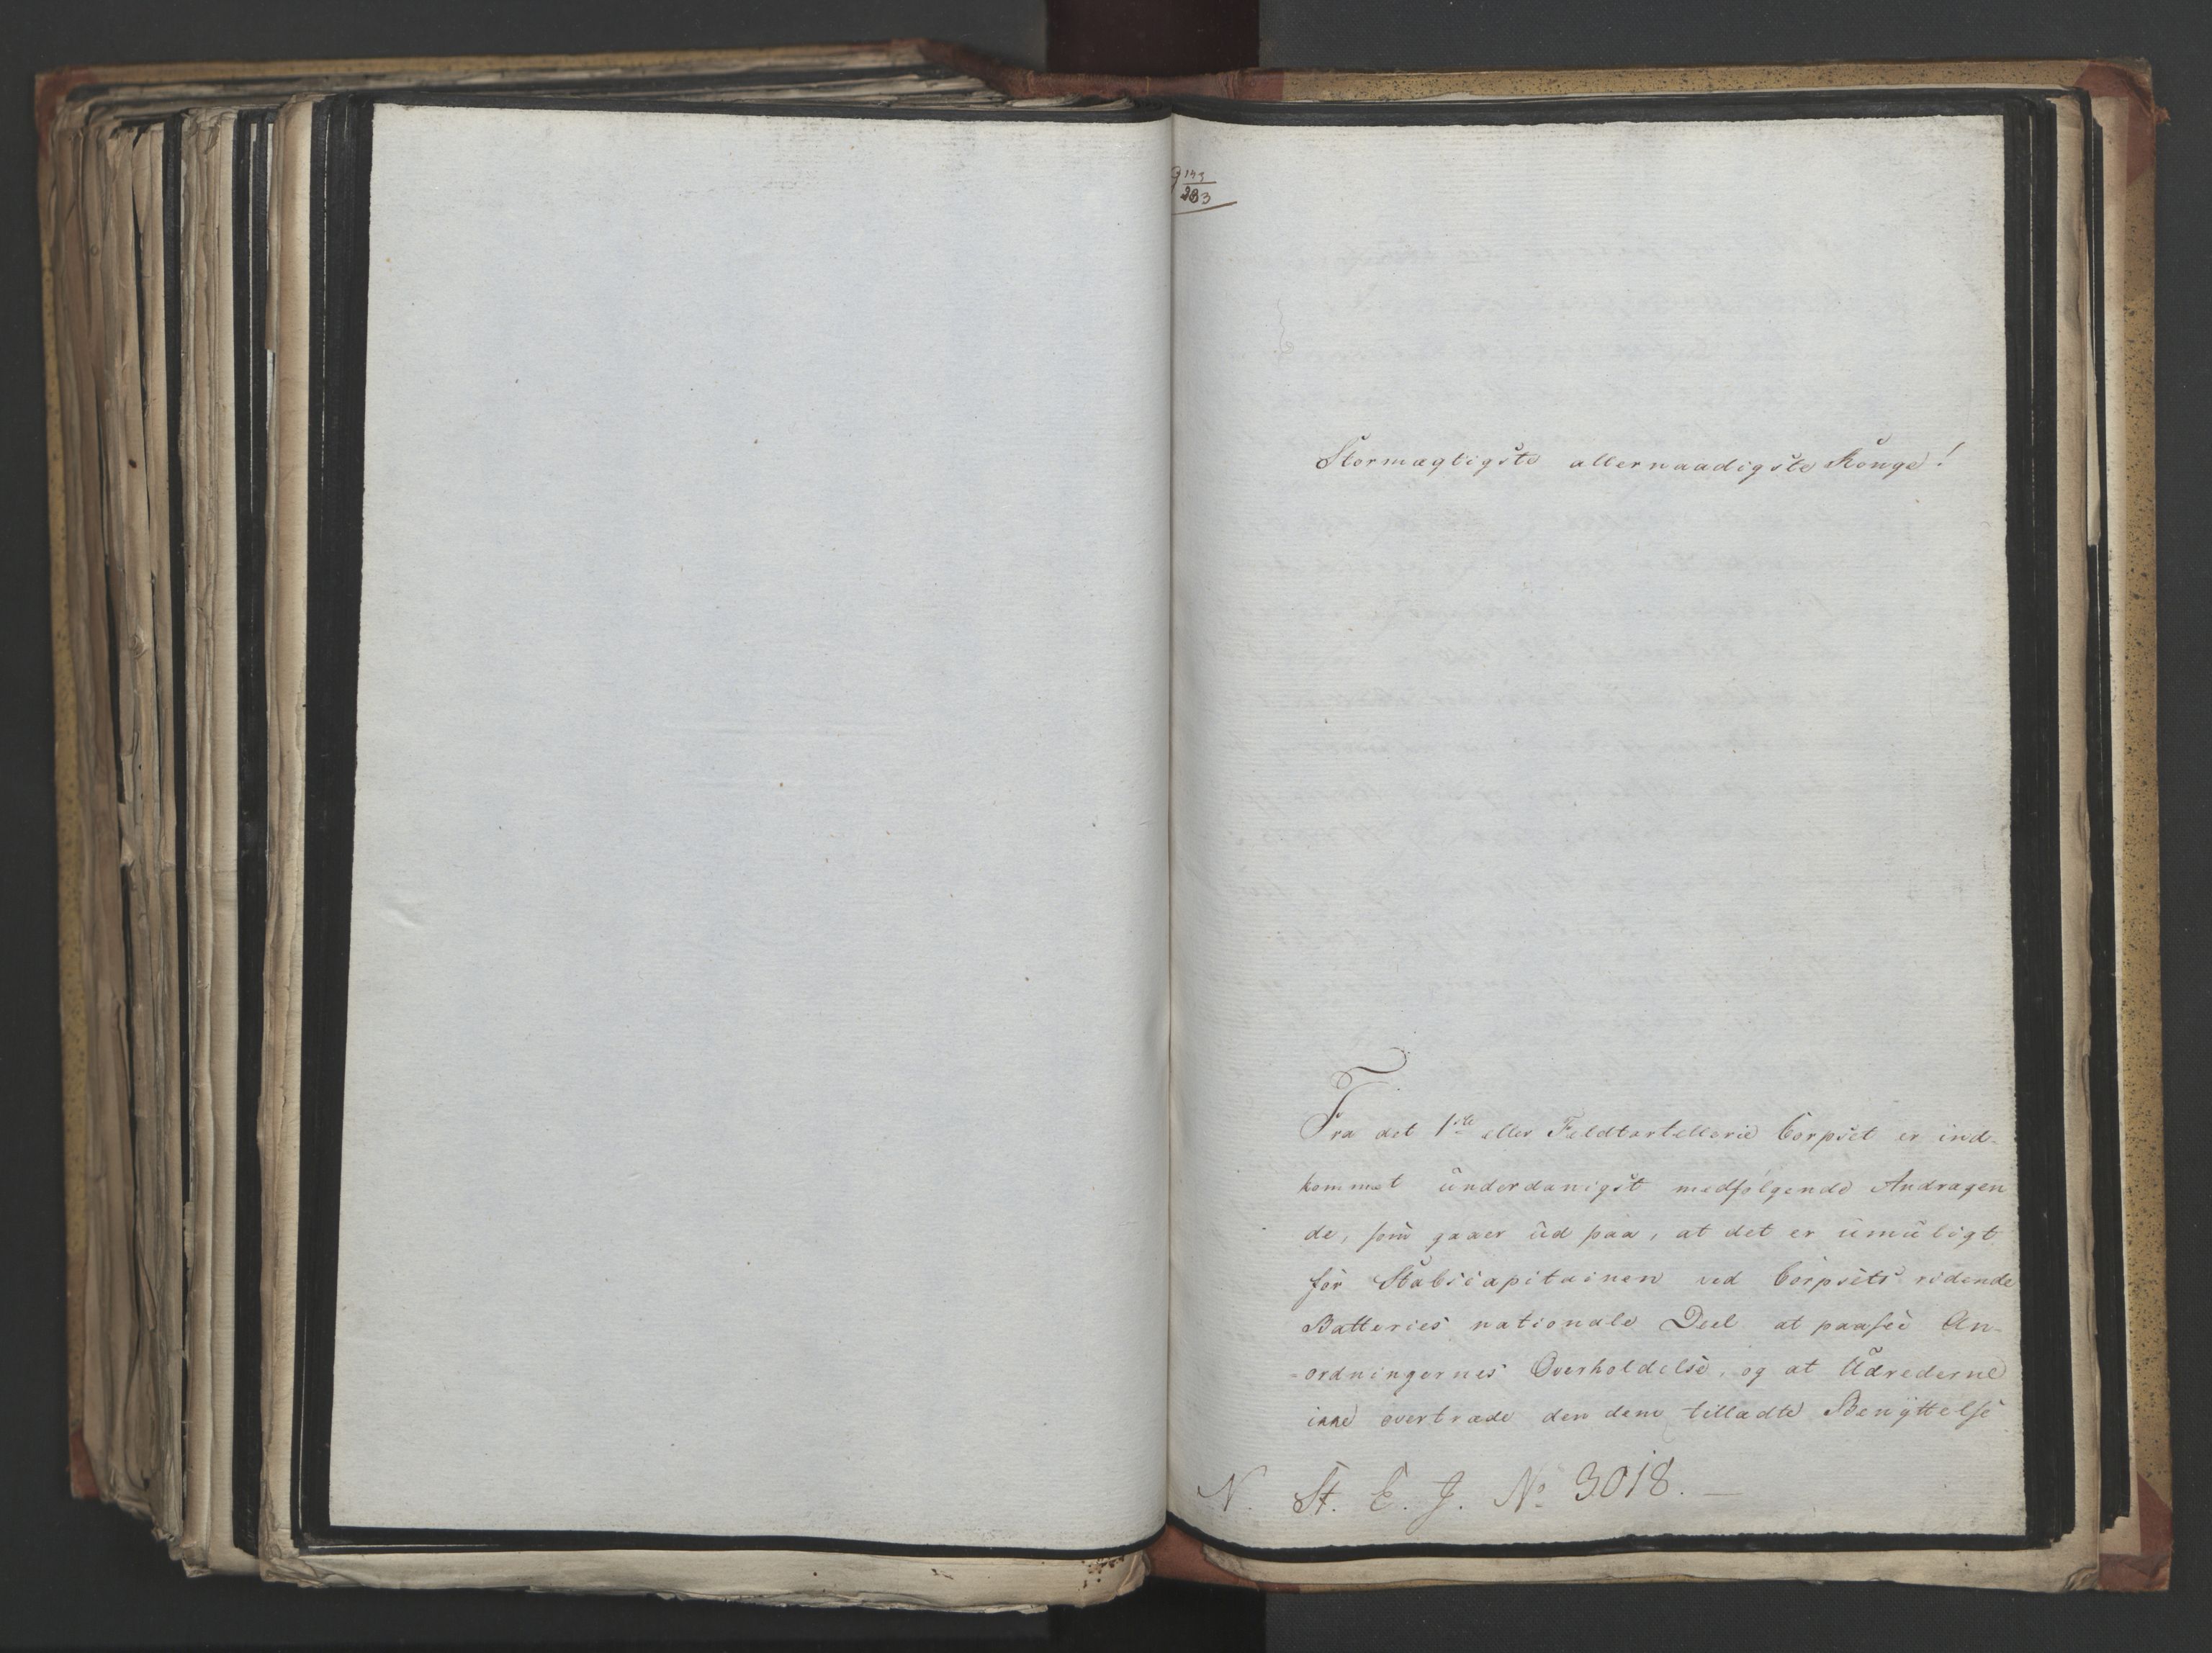 133
283
Stormægtigste allernaadigste Konge!
Fra det 1ste eller Feldtartellerie Corpset er ind-
kommet underdanigst medfølgende Andragen
de, som gaaer ud paa, at det er umuligt
for Stabscapitainen ved Corpsets ridende
Batteries nationale Deel at paasee An-
-ordningernes Overholdelse, og at Udrederne
ikke overtræde den dem tilladte Benyttelse
N. St. E. J. No 3018. —